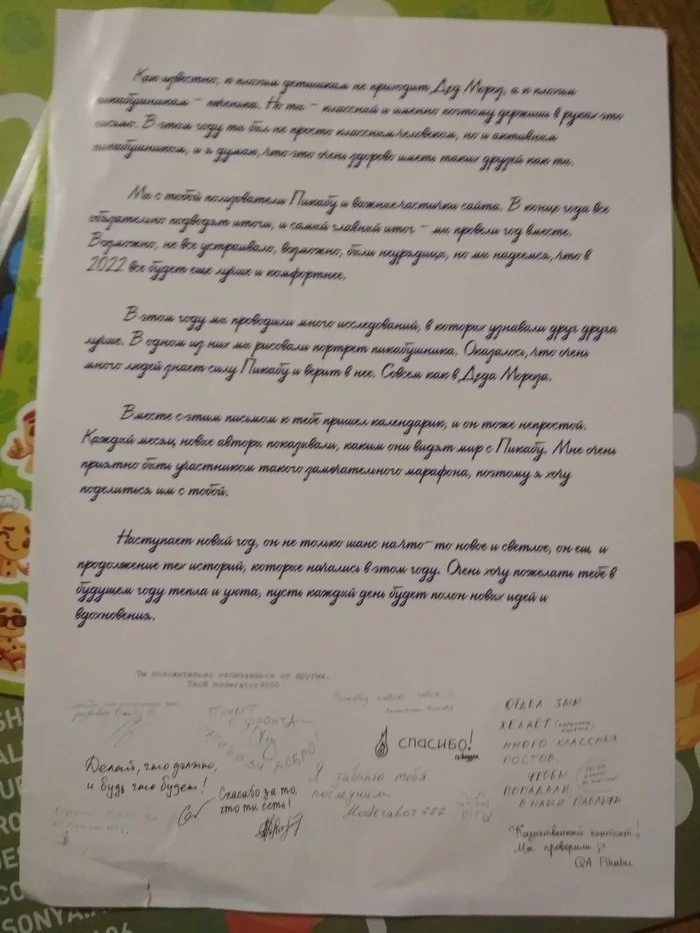 Как известно, к плохим детишкам не приходит Дед Мороз, а к плохим
пикабушникам - печенька. Но ты - классный и именно поэтому держишь в руках это
письмо. В этом году ты был не просто классным человеком, но и активным
пикабушником, и я думаю, что это очень здорово иметь таких друзей как ты.
Мы с тобой пользователи Пикабу и важные частички сайта. В конце года все
обязательно подводят итоги, и самый главный итог - мы провели год вместе.
Возможно, не все устраивало, возможно, были неурядицы, но мы надеемся, что в
2022 все будет еще лучше и комфортнее.
В этом году мы проводили много исследований, в которых узнавали друг друга
лучше. В одном из них мы рисовали портрет пикабушника. Оказалось, что очень
много людей знает силу Пикабу и верит в нее. Совсем как в Деда Мороза.
Вместе с этим письмом к тебе пришел календарик, и он тоже непростой.
Каждый месяц новые авторы показывали, каким они видят мир с Пикабу. Мне очень
приятно быть участником такого замечательного марафона, поэтому я хочу
поделиться им с тобой.
Наступает новый год, он не только шанс на что-то новое и светлое, он ещ и
продолжение тех историй, которые начались в этом году. Очень хочу пожелать тебе в
будущем году тепла и уюта, пусть каждый день будет полон новых идей и
вдохновения.
Ты положительно отличаешься от других.
Твой moderator9000
ПРИВЕТ
С ФРОНТА
Делай, что должно,
и будь что будет!
Спасибо за то,
что ты есть!
СПАСИБО!
Я забаню тебя
последним
Moderator 777
ОТДЕЛ SMM
ЖЕЛАЕТ
МНОГО КЛАССНЫХ
ПОСТОВ,
ЧТОБЫ
ПОПАДАЛИ
В НАШИ ПАБЛИКИ
"Качественный контент!
Мы проверили"
QA Pikabu
SONYA